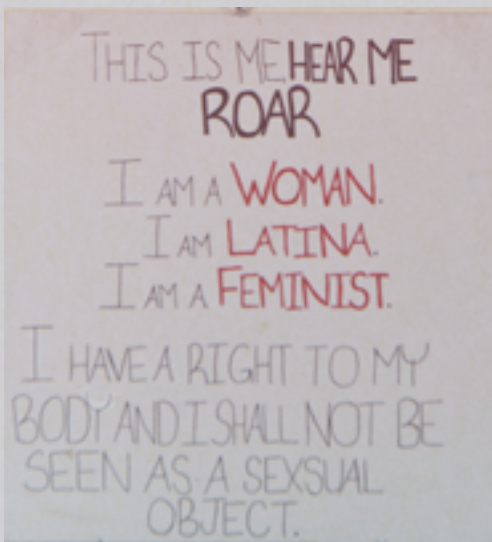 THIS IS ME HEAR ME
ROAR
I AM A WOMAN.
I AM LATINA.
I AM A FEMINIST.
I HAVE A RIGHT TO MY
BODY AND I SHALL NOT BE
SEEN AS A SEXSUAL
OBJECT.